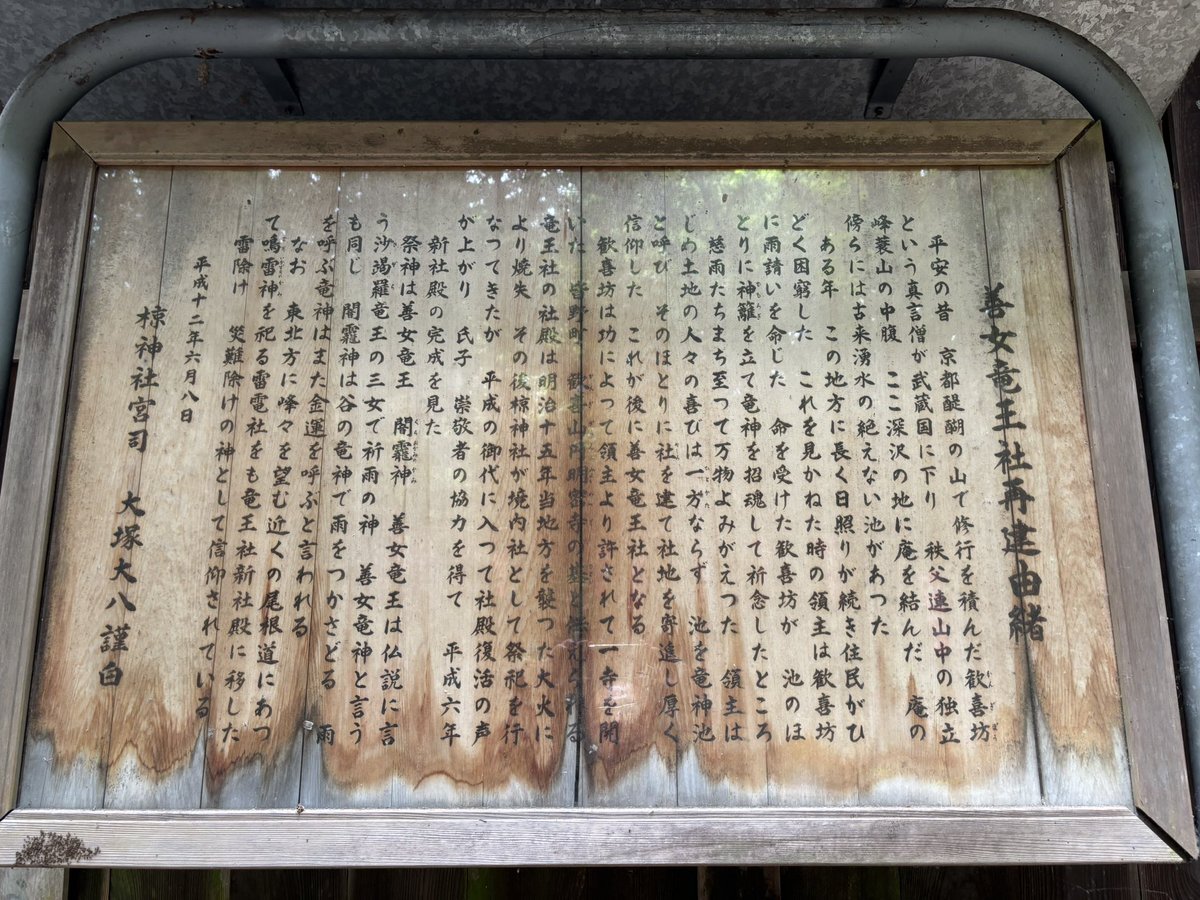 善女竜王社再建由緒
平安の昔 京都醍醐の山で修行を積んだ歓喜坊
という真言僧が武蔵国に下り 秩父連山中の独立
峰蓑山の中腹 ここ深沢の地に庵を結んだ 庵の
傍らには古来湧水の絶えない池があった
ある年 この地方に長く日照りが続き住民がひ
どく困窮した これを見かねた時の領主は歓喜坊
に雨請いを命じた 命を受けた歓喜坊が 池のほ
とりに神籬を立て竜神を招魂して祈念したところ
慈雨たちまち至つて万物よみがえつた 領主は
じめ土地の人々の喜びは一方ならず 池を竜神池
と呼び そのほとりに社を建て社地を寄進し厚く
信仰した これが後に善女竜王社となる
歓喜坊は功によつて領主より許されて一寺を開
いた 皆野町 歓喜山円明密寺の基と伝えられる
竜王社の社殿は明治十五年当地方を襲つた大火に
より焼失 その後椋神社が境内社として祭祀を行
なつてきたが 平成の御代に入つて社殿復活の声
が上がり 氏子 崇敬者の協力を得て 平成六年
新社殿の完成を見た
祭神は善女竜王 闇龗神 善女竜王は仏説に言
う沙羯羅竜王の三女で祈雨の神 善女竜神と言う
も同じ 闇龗神は谷の竜神で雨をつかさどる 雨
を呼ぶ竜神はまた金運を呼ぶと言われる
なお 東北方に峰々を望む近くの尾根道にあつ
て鳴雷神を祀る雷電社をも竜王社新社殿に移した
雷除け 災難除けの神として信仰されている
平成十二年六月八日
椋神社宮司 大塚大八謹白